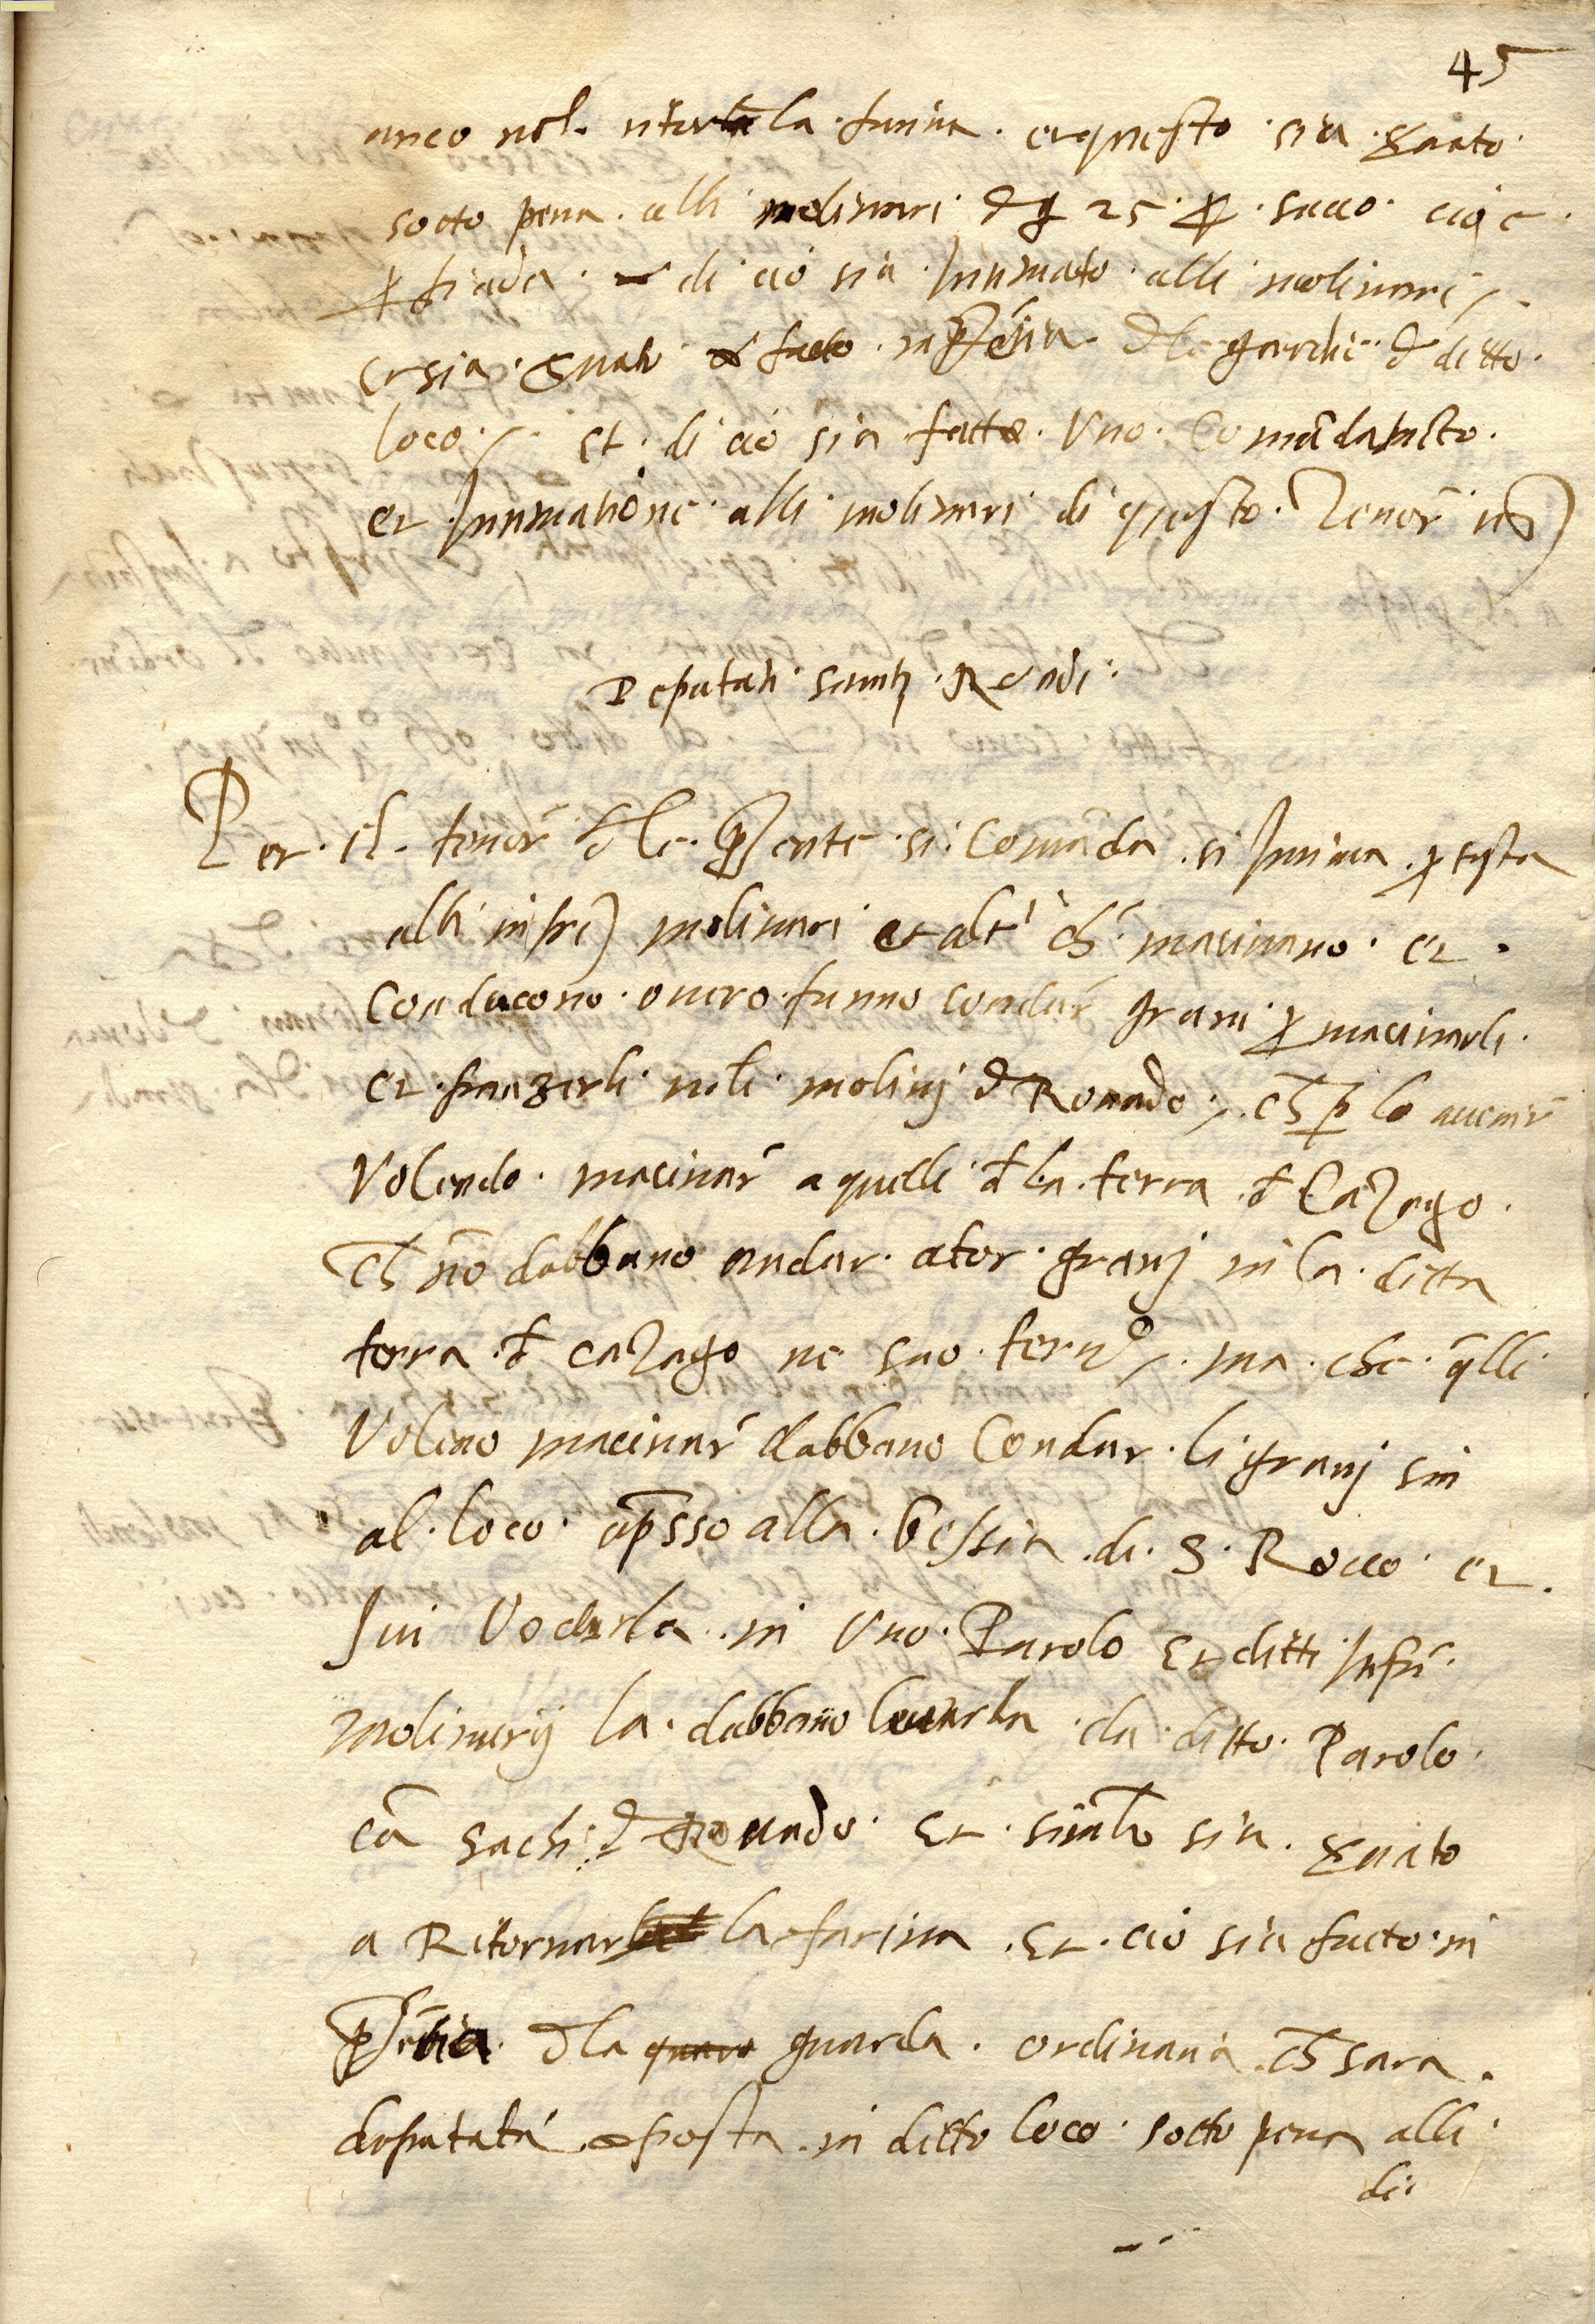 45
anco nel ritor la farina. et questo sia  
sotto pena. alli molinari d 25 p. sacco. cioe
p biada. di cio sia Intimato alli molinari
et sia in p͞ntia dle guardie d ditto.
loco. et. di cio sia fatto. Uno. Comãdamẽto.
et Intimatione alli molinari di questo. Tenor
Deputati sanitatis Roadi.
Per. el. tenor dle. p͞nte. si. Comãda .si Intima. p testa
alli infri) molinari et altri ch macinano. et.
Conducono. overo. fanno condur grani p macinarli.
et. franzerli neli molinj d Rovado. ch p lo avenir
Volendo. macinar a quelli dla. terra d Cazago.
ch nõ dabbano andar. a tor. granj in la. ditta
terra. d cazago ne suo. ter.o. ma. che. q̃lli
Voleno macinar dabbano Condur. li granj sin
al. loco. ap̃sso alla. Gessia. di. S. Rocco. et.
Ivi Vodarla. in Uno. Parolo et ditti Infri.
molinarij la. dabbano levarla. da ditto. Parolo.
cũ sachi d Rovado. Et. simil.o sia.
a Ritornar la farina. Et. cio sia facto. in
p͞ntia. dla guarda. ordinaria. ch sara.
deputata posta. in ditto loco. sotto pena alli
di.